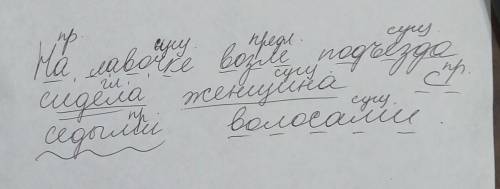 пр. сущ. предл. сущ.
На лавочке возле подъезда
гл. сущ. пр.
сидела женщина с
пр. сущ.
седыми волосами.